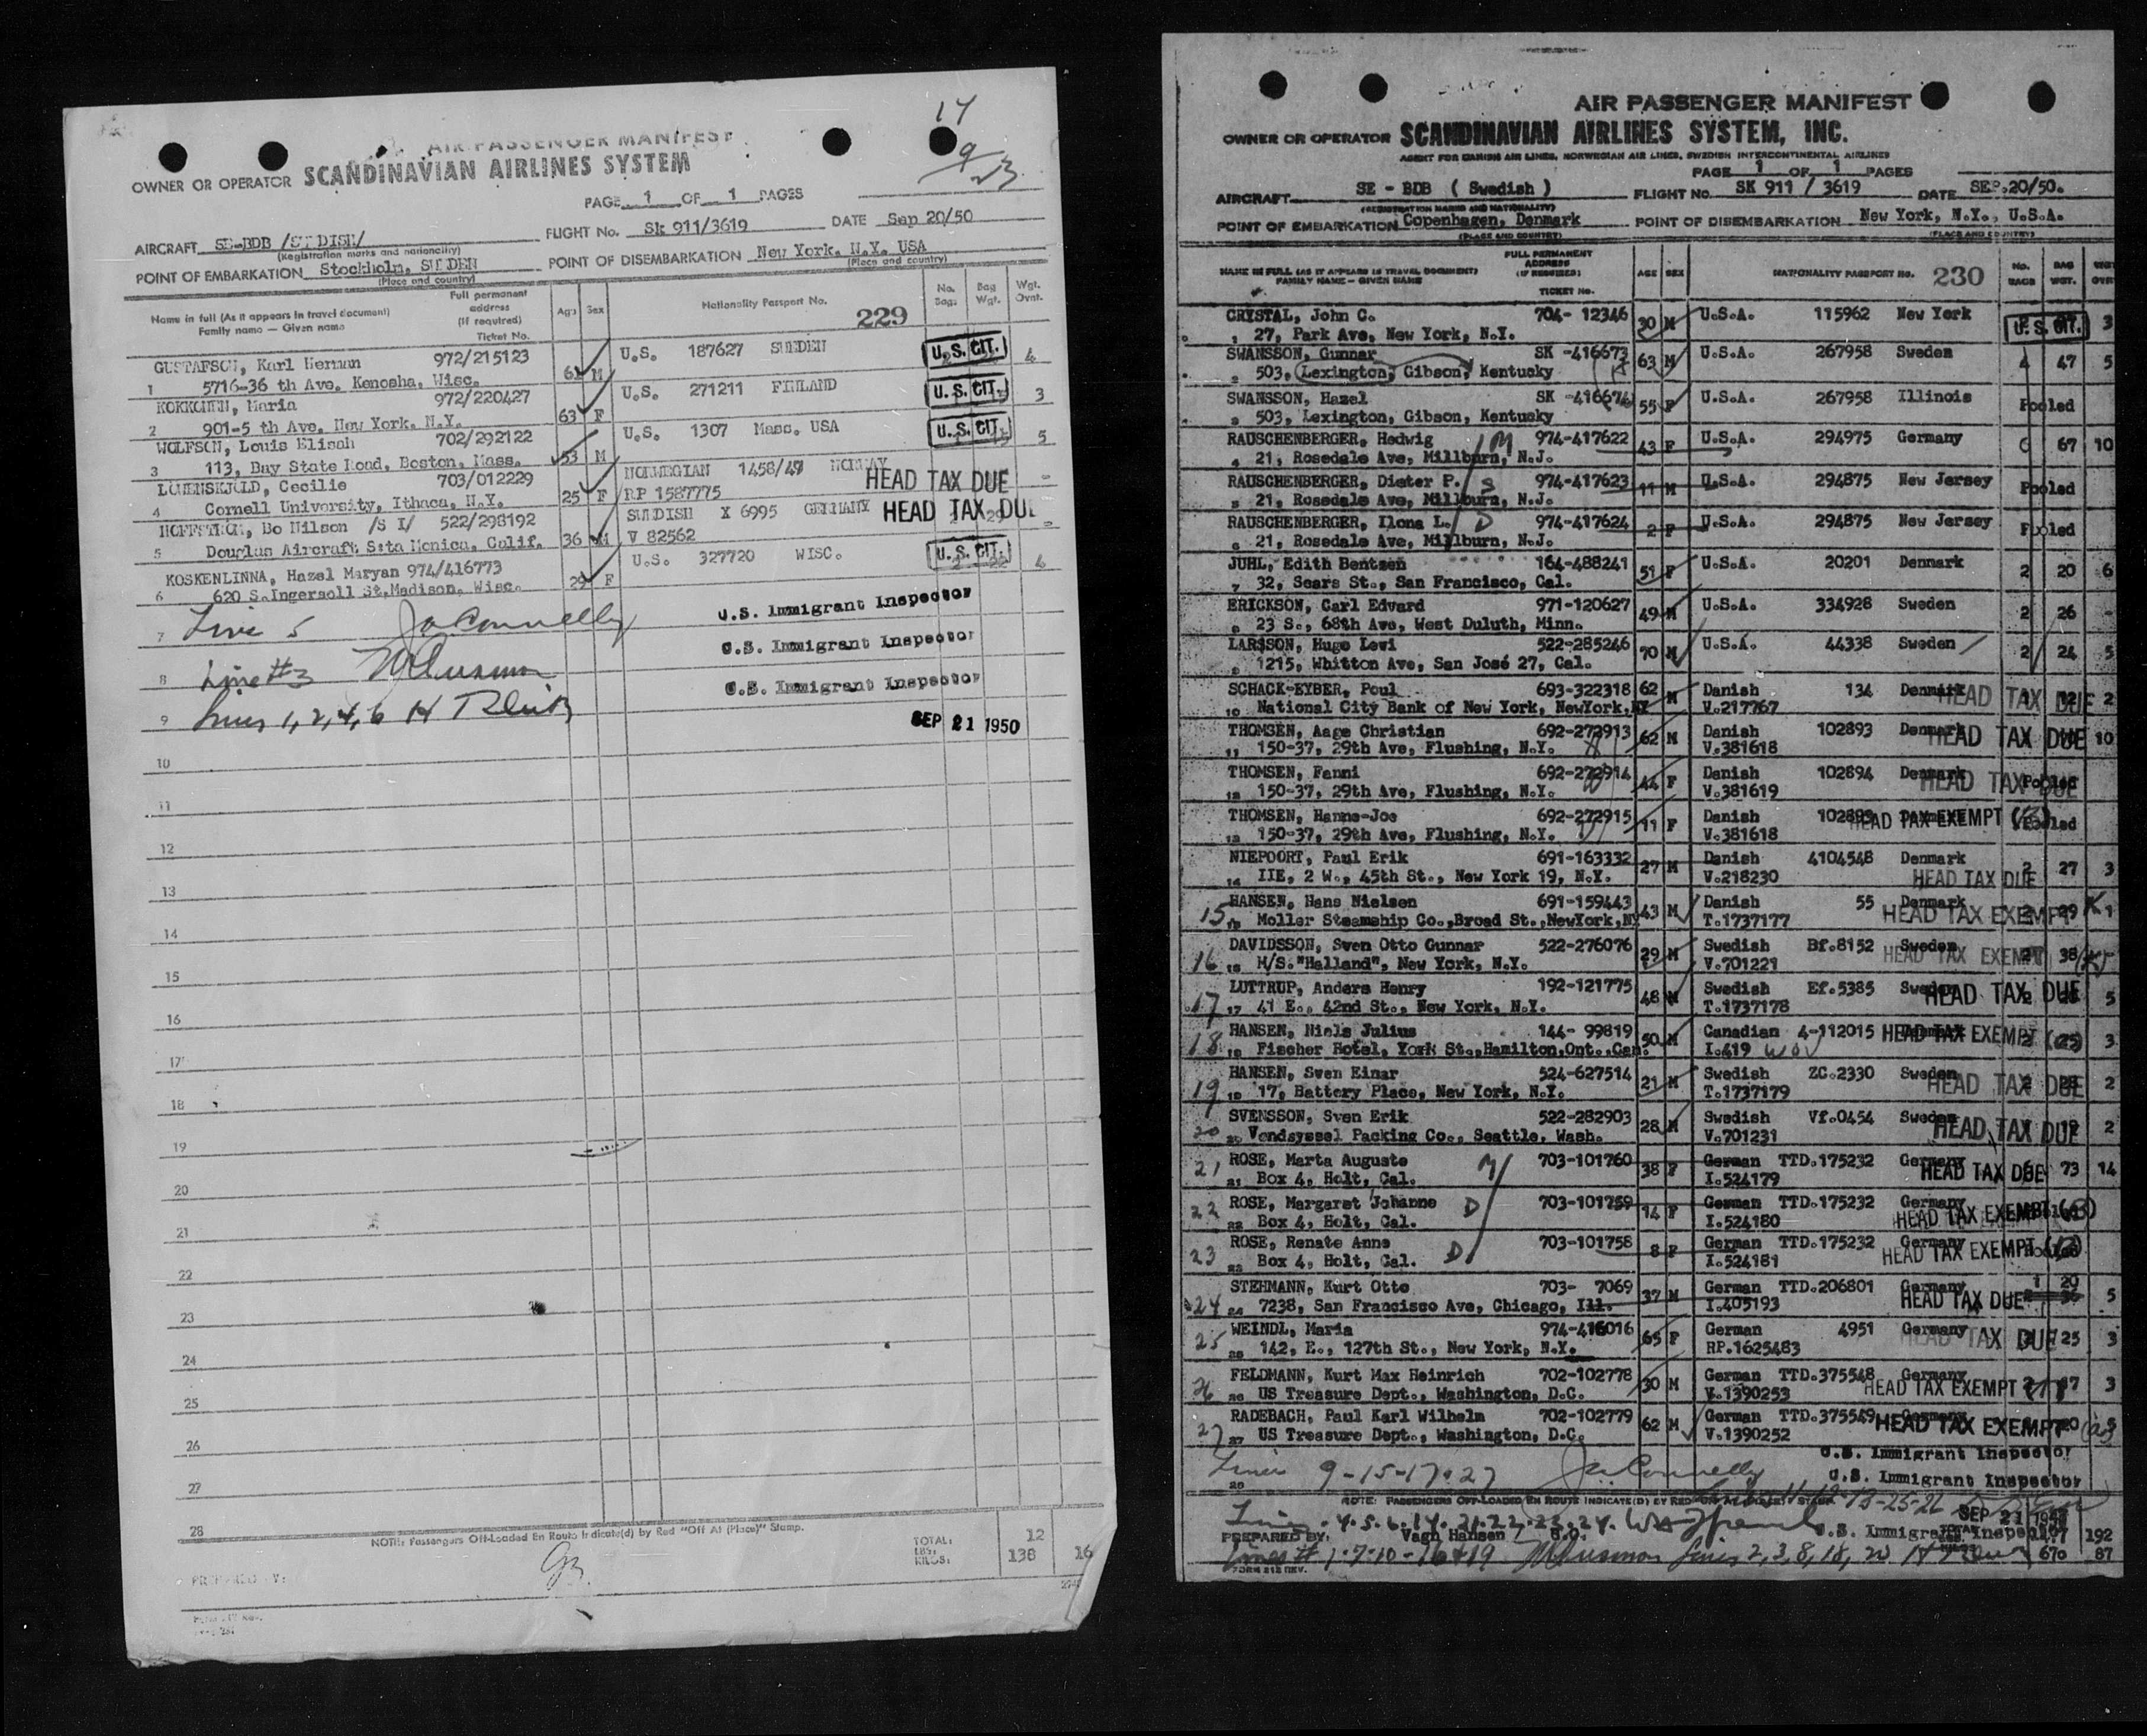 17
9/23
AIR PASSENGER MANIFEST
OWNER OR OPERATOR SCANDINAVIAN AIRLINES SYSTEM
PAGE 1 OF 1 PAGES
AIRCRAFT SE-BDB /SWEDISH/ FLIGHT No. Sk 911/3619 DATE Sep 20/50
(Registration marks and nationality)
POINT OF EMBARKATION Stockholm, SWEDEN POINT OF DISEMBARKATION New York, N.Y. USA
(Place and country) (Place and country)
Name in full (As it appears in travel document) Family name — Given name Full permanent address (If required) Ticket No. Age Sex Nationality Passport No. 229 No. Bags Bag Wgt. Wgt. Ovnt.
GUSTAFSON, Karl Herman 972/215123 61 M U.S. 187627 SWEDEN U.S. CIT. 4
1 5716-36 th Ave. Kenosha, Wisc.
KOKKONEN, Maria 972/220427 63 F U.S. 271211 FINLAND U.S. CIT. 3
2 901-5 th Ave. New York, N.Y.
WOLFSON, Louis Elisah 702/292122 53 M U.S. 1307 Mass. USA U.S. CIT. 5
3 113, Bay State Road, Boston, Mass.
LOUENSKJOLD, Cecilie 703/012229 25 F NORWEGIAN 1458/47 NORWAY HEAD TAX DUE -
4 Cornell University, Ithaca, N.Y. RP 1587775
Bo Nilson /S I/ 522/298192 36 M SWEDISH X 6995 GERMANY HEAD TAX DUE
5 Douglas Aircraft Snta Monica, Calif. V 82562
KOSKENLINNA, Hazel Maryan 974/416773 29 F U.S. 327720 WISC. U.S. CIT. 4
6 620 S.Ingersoll St.Madison, Wisc.
7 Line 5 Connelly U.S. Immigrant Inspector
8 Line #3 U.S. Immigrant Inspector
9 Lines 1, 2, 4, 6 U.S. Immigrant Inspector
SEP 21 1950
10
11
12
13
14
15
16
17
18
19
20
21
22
23
24
25
26
27
28
NOTE: Passengers Off-Loaded En Route Indicate(d) by Red "Off At (Place)" Stamp.
TOTAL: 12
LBS:
KILOS: 138 16
PREPARED BY:
AIR PASSENGER MANIFEST
OWNER OR OPERATOR SCANDINAVIAN AIRLINES SYSTEM, INC.
AGENT FOR DANISH AIR LINES, NORWEGIAN AIR LINES, SWEDISH INTERCONTINENTAL AIRLINES
PAGE 1 OF 1 PAGES
AIRCRAFT SE - BDB ( Swedish ) FLIGHT NO. SK 911 / 3619 DATE SEP.20/50.
(REGISTRATION MARKS AND NATIONALITY)
POINT OF EMBARKATION Copenhagen, Denmark POINT OF DISEMBARKATION New York, N.Y., U.S.A.
(PLACE AND COUNTRY) (PLACE AND COUNTRY)
NAME IN FULL (AS IT APPEARS IN TRAVEL DOCUMENT) FAMILY NAME — GIVEN NAME FULL PERMANENT ADDRESS (IF REQUIRED) TICKET NO. AGE SEX NATIONALITY PASSPORT NO. 230 NO. BAGS BAG WGT.
CRYSTAL, John C. 704- 12346 30 M U.S.A. 115962 New York U.S. CIT. 3
27, Park Ave, New York, N.Y.
SWANSSON, Gunnar SK -416673 63 M U.S.A. 267958 Sweden 4 47 5
503, Lexington, Gibson, Kentucky
SWANSSON, Hazel SK -416674 55 F U.S.A. 267958 Illinois Pooled
503, Lexington, Gibson, Kentucky
RAUSCHENBERGER, Hedwig M 974-417622 43 F U.S.A. 294975 Germany 67 10
21, Rosedale Ave, Millburn, N.J.
RAUSCHENBERGER, Dieter P. S 974-417623 11 M U.S.A. 294875 New Jersey Pooled
21, Rosedale Ave, Millburn, N.J.
RAUSCHENBERGER, Ilona L. D 974-417624 2 F U.S.A. 294875 New Jersey Pooled
21, Rosedale Ave, Millburn, N.J.
JUHL, Edith Bentsen 164-488241 51 F U.S.A. 20201 Denmark 2 20 6
7 32, Sears St., San Francisco, Cal.
ERICKSON, Carl Edvard 971-120627 49 M U.S.A. 334928 Sweden 2 26 -
23 S., 68th Ave, West Duluth, Minn.
LARSSON, Hugo Levi 522-285246 70 M U.S.A. 44338 Sweden 2 24 5
1215, Whitton Ave, San José 27, Cal.
SCHACK-EYBER, Poul 693-322318 62 M Danish 134 Denmark HEAD TAX DUE 2
10 National City Bank of New York, NewYork,NY V.217767
THOMSEN, Aage Christian 692-272913 62 M Danish 102893 Denmark HEAD TAX DUE 10
11 150-37, 29th Ave, Flushing, N.Y. V.381618
THOMSEN, Fanni 692-272914 44 F Danish 102894 Denmark HEAD TAX DUE Pooled
12 150-37, 29th Ave, Flushing, N.Y. V.381619
THOMSEN, Hanne-Joe 692-272915 11 F Danish 102893 Denmark HEAD TAX EXEMPT Pooled
13 150-37, 29th Ave, Flushing, N.Y. V.381618
NIEPOORT, Paul Erik 691-163332 27 M Danish 4104548 Denmark 2 27 3
14 IIE, 2 W., 45th St., New York 19, N.Y. V.218230 HEAD TAX DUE
HANSEN, Hans Nielsen 691-159443 43 M Danish 55 Denmark HEAD TAX EXEMPT 1
15 Moller Steamship Co.,Broad St.,NewYork,NY T.1737177
DAVIDSSON, Sven Otto Gunnar 522-276076 29 M Swedish Bf.8152 Sweden HEAD TAX EXEMPT 38
16 M/S."Halland", New York, N.Y. V.701221
LUTTRUP, Anders Henry 192-121775 48 M Swedish Ef.5385 Sweden HEAD TAX DUE 5
17 17 41 E., 42nd St., New York, N.Y. T.1737178
HANSEN, Niels Julius 144- 99819 50 M Canadian 4-112015 Denmark HEAD TAX EXEMPT 3
18 Fischer Hotel, York St.,Hamilton,Ont.,Can. I.419
HANSEN, Sven Einar 524-627514 21 M Swedish ZC.2330 Sweden HEAD TAX DUE 2
19 17, Battery Place, New York, N.Y. T.1737179
SVENSSON, Sven Erik 522-282903 28 M Swedish Vf.0454 Sweden HEAD TAX DUE 2
20 Vendsyssel Packing Co., Seattle, Wash. V.701231
ROSE, Marta Auguste M 703-101760 38 F German TTD.175232 Germany HEAD TAX DUE 73 14
21 21 Box 4, Holt, Cal. I.524179
ROSE, Margaret Johanne D 703-101759 14 F German TTD.175232 Germany HEAD TAX EXEMPT
22 22 Box 4, Holt, Cal. I.524180
ROSE, Renate Anne D 703-101758 8 F German TTD.175232 Germany HEAD TAX EXEMPT
23 23 Box 4, Holt, Cal. I.524181
STEHMANN, Kurt Otto 703- 7069 37 M German TTD.206801 Germany HEAD TAX DUE 1 20 5
24 24 7238, San Francisco Ave, Chicago, Ill. I.405193
WEINDL, Maria 974-416016 65 F German 4951 Germany HEAD TAX DUE 25 3
25 142, E., 127th St., New York, N.Y. RP.1625483
FELDMANN, Kurt Max Heinrich 702-102778 30 M German TTD.375548 Germany HEAD TAX EXEMPT 17 3
26 US Treasure Dept., Washington, D.C. V.1390253
RADEBACH, Paul Karl Wilhelm 702-102779 62 M German TTD.375549 Germany HEAD TAX EXEMPT 20 5
27 27 US Treasure Dept., Washington, D.C. V.1390252
U.S. Immigrant Inspector
Lines 9-15-17-27 Connelly U.S. Immigrant Inspector
28
NOTE: PASSENGERS OFF-LOADED EN ROUTE INDICATE(D) BY RED
Lines 4.5.6.14.21.22.23.24. SEP 21
PREPARED BY: Vagn Hansen U.S. Immigrant Inspector 192
Lines # 1-7-10-16+19 Lines 2, 3, 8, 18, 20 670 87
FORM 218 REV.